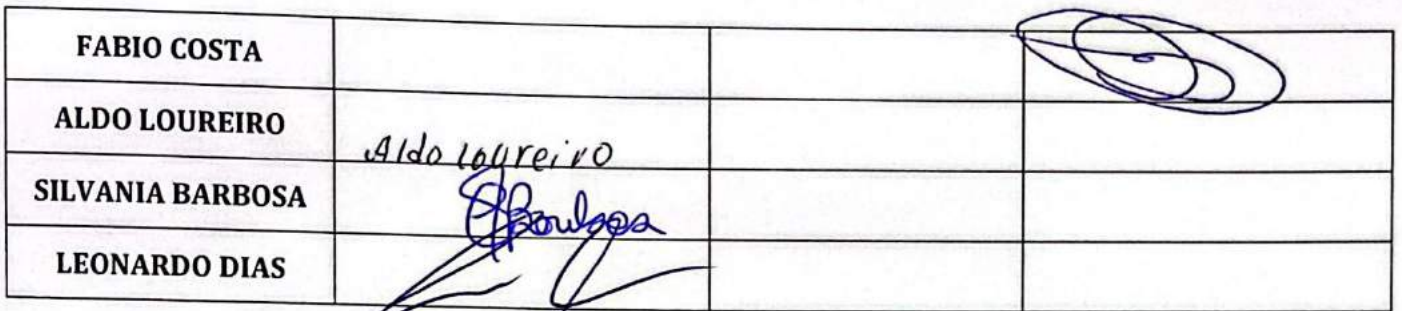 FABIO COSTA
ALDO LOUREIRO
Aldo Loureiro
SILVANIA BARBOSA
LEONARDO DIAS